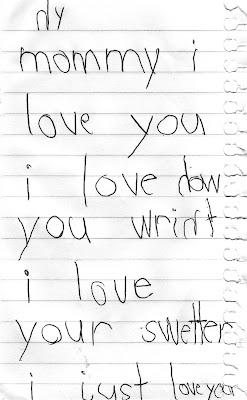 dy
mommy i
love you
i love daw
you wrint
i love
your swetter
i iust love your